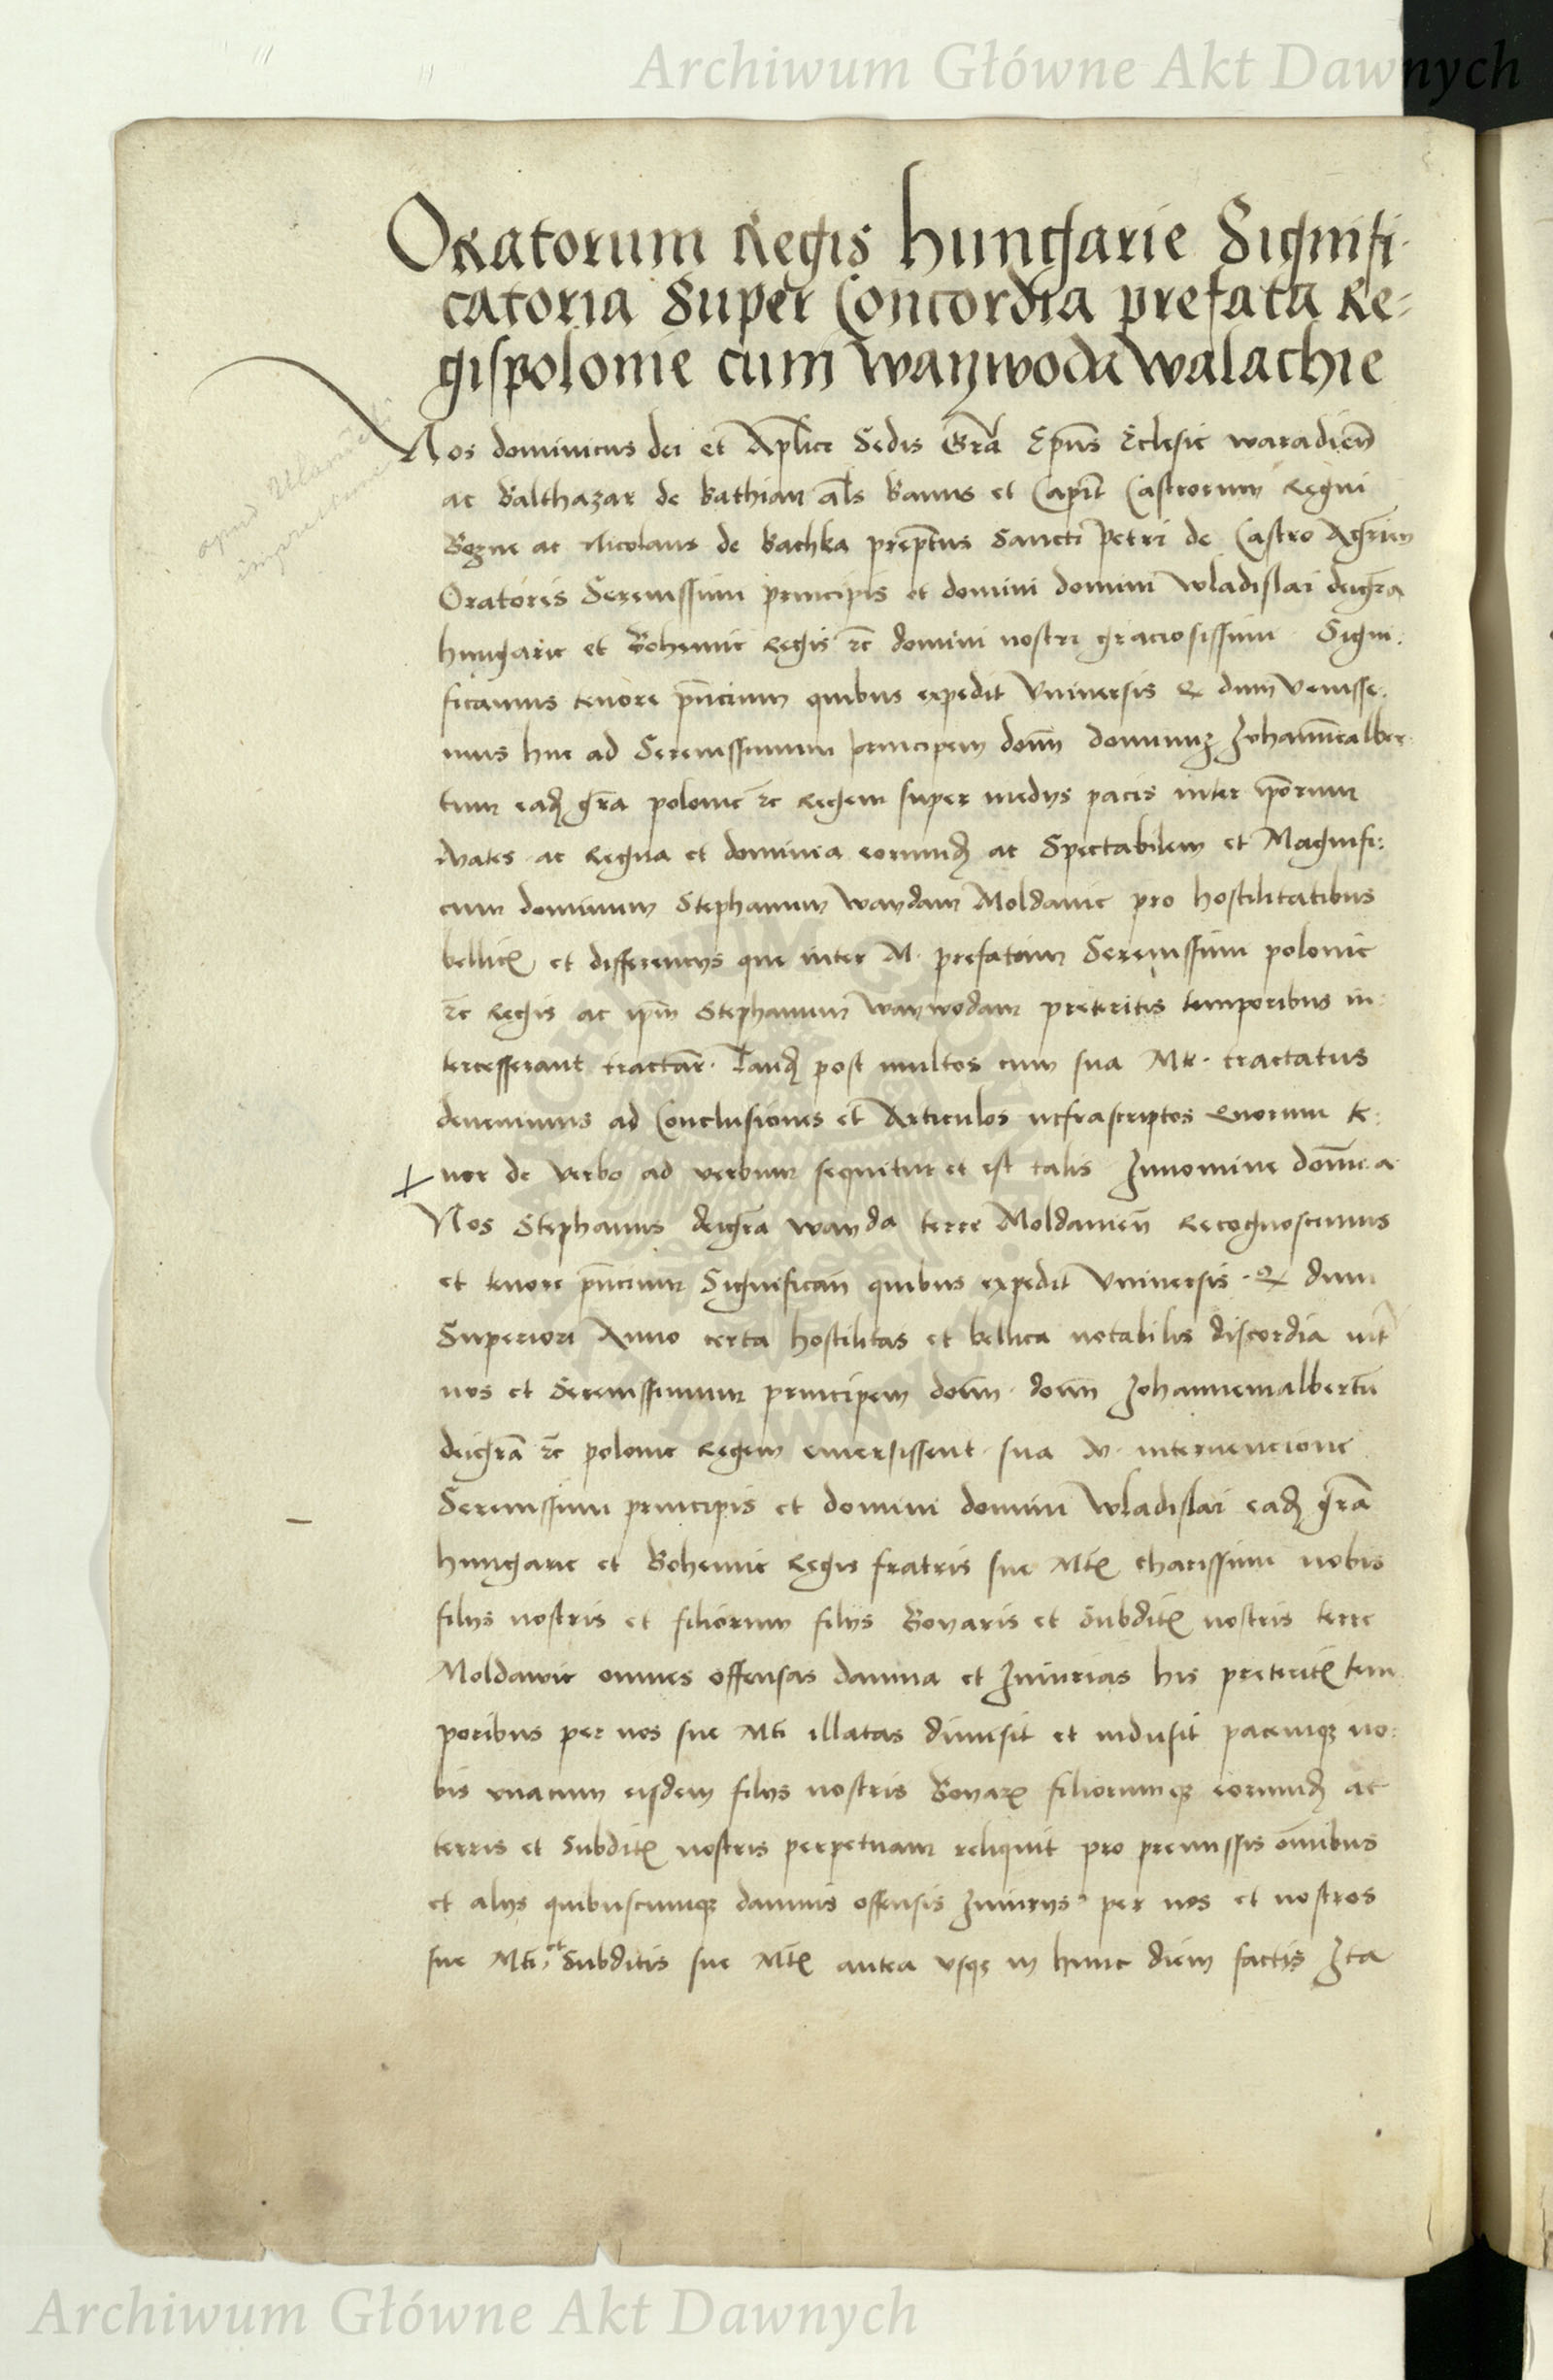 Archiwum Główne Akt Dawnych
Oratorum Regis hungarie Signifi-
catoria Super Concordia prefata Re-
gispolonie cum waywoda walachie
Nos dominicus dei et Aplice Sedis Gra Epus Eclesie waradien
ac Balthazar de Bathian als Banus et Capit Castrorum Regni
Bozne ac Nicolaus de Bachka preptus Sancti petri de Castro Agrien
Oratores Serenissimi principis et domini domini wladislai deigra
hungarie et Bohemie Regis etc domini nostri graciosissimi Signi-
ficamus tenore pncium quibus expedit Universis Q dum venisse-
mus huc ad Serenissimum principem dom dominum Johannealber-
tum eadem gra polonie etc Regem super medys pacis inter iporum
Mates ac Regna et dominia eorundem ac Spectabilem et Magnifi-
cum dominum Stephanum wayvdam Moldavie pro hostilitatibus
bellicis et differencys que inter M. prefatam Serenissimi polonie
etc Regis ac ipm Stephanum waywodam preteritis temporibus in-
tercesserant tractare. Tandem post multos cum sua Mte. tractatus
devenimus ad Conclusiones et Articulos infrascriptos quorum te-
nor de verbo ad verbum sequitur et est talis Innomine domi. a
Nos Stephanus deigra wayvda terre Moldavien Recognoscimus
et tenore pncium Significam quibus expedit Universis. Q dum
Superiori Anno certa hostilitas et bellica notabilis discordia int
nos et Serenissimum principem dom. dom Johannemalbertu
deigra etc polonie Regem emersissent. sua M. intervencione
Serenissimi principis et domini domini wladislai eadem gra
hungarie et Bohemie Regis fratris sue Mtis charissimi nobis
filys nostris et filiorum filys Boyaris et Subditis nostris terre
Moldawie omnes offensas damna et Iniurias his preteritis tem
poribus per nos sue Mti illatas dimisit et indulsit pacemque no-
bis unacum eisdem filys nostris Boyaris filiorumque eorundem ac
terris et Subditis nostris perpetuam reliquit pro premissis omibus
et alys quibuscumque damnis offensis Iniurys per nos et nostros
sue Mti, et Subditis sue Mtis antea usque in hunc diem factis Ita
Archiwum Główne Akt Dawnych